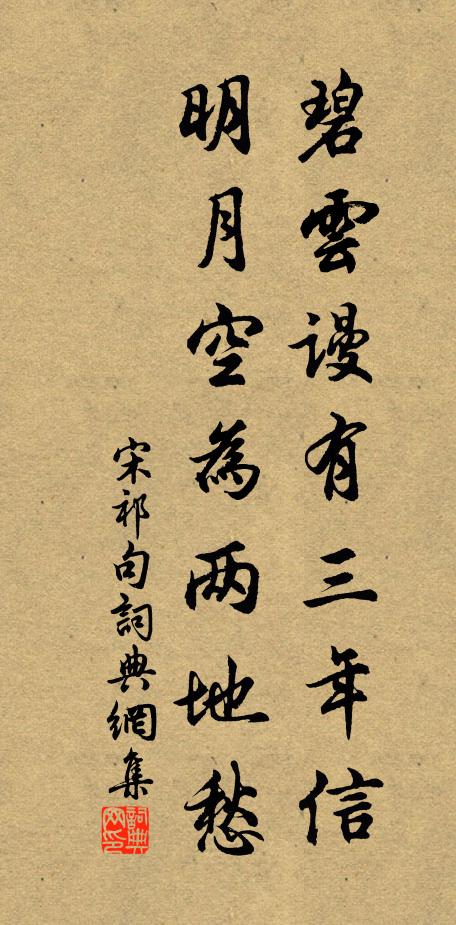 碧雲謾有三年信
明月空為两地愁
宋祁句詞典網集
詞典網印